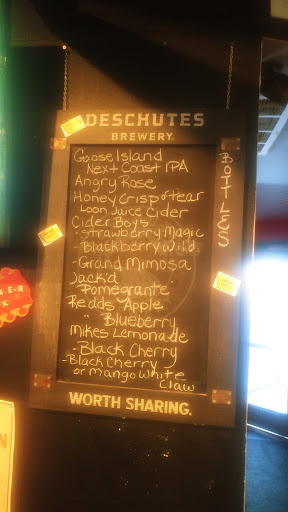 DESCHUTES
BREWERY.
BOTTLES
Goose Island
Next Coast IPA
Angry Rose
Honey Crisp or Pear
Loon Juice Cider
Cider Boys
- Strawberry Magic
- Blackberry Wild
- Grand Mimosa
Jack'd
- Pomegrante
Redds Apple
" Blueberry
Mikes Lemonade
- Black Cherry
- Black Cherry
or Mango White
Claw
WORTH SHARING.